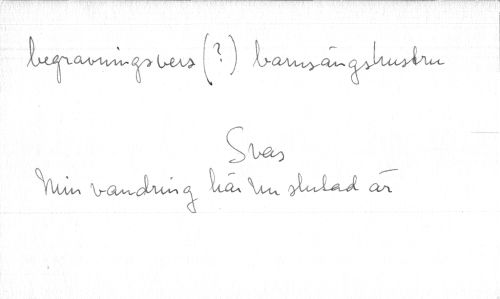 begravningsvers (?) barnsängshustru
Svas
Min vandring här nu slutad är